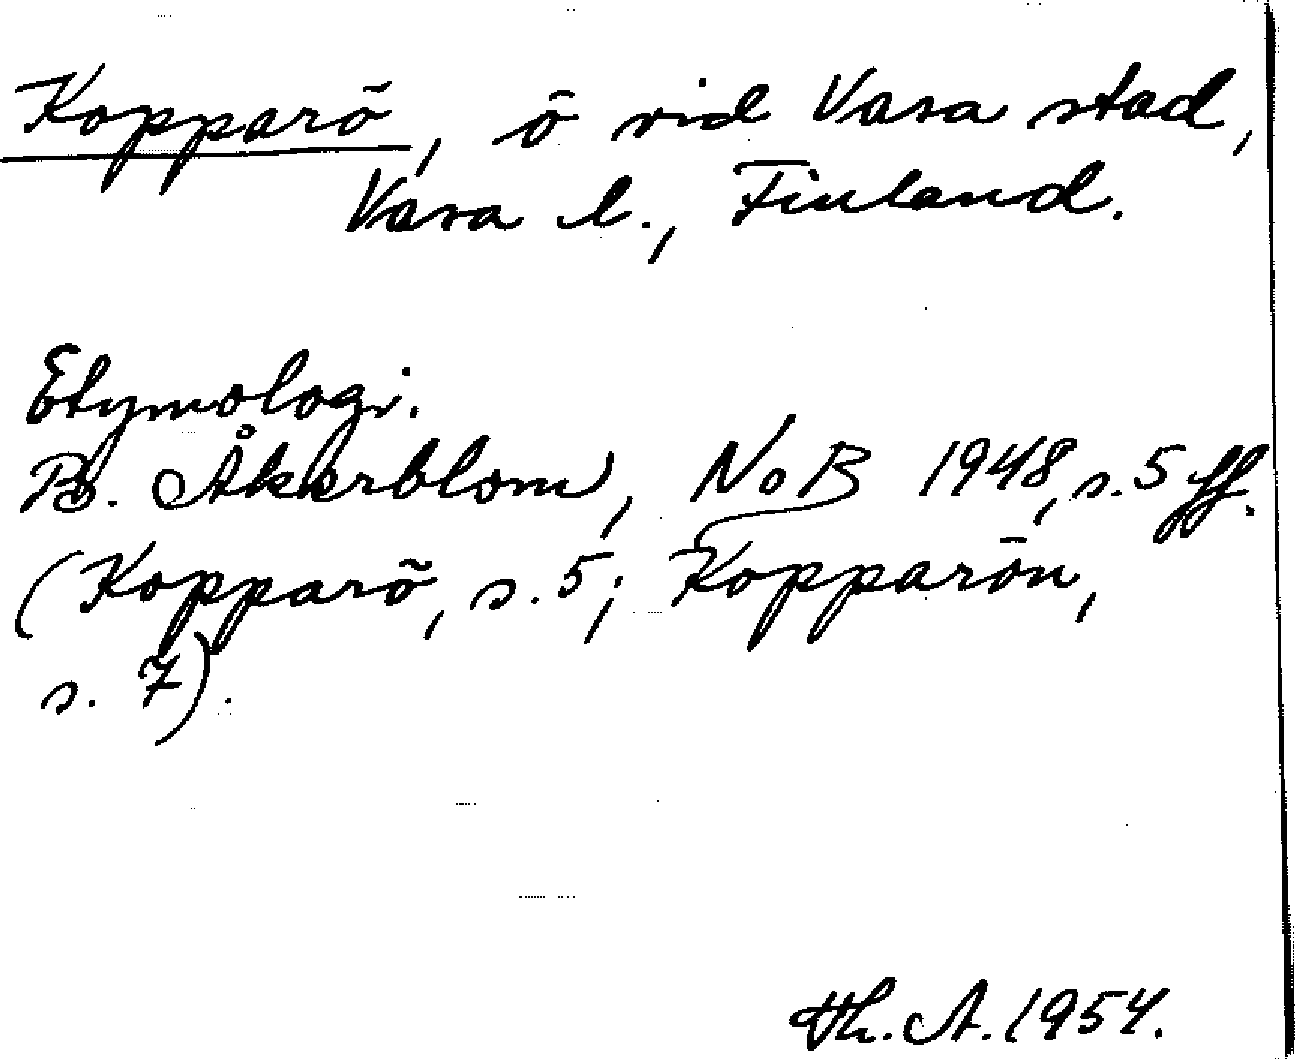 Kopparö, ö vid Vasa stad,
Vasa l., Finland.
Etymologi.
B. Åkerblom, NoB 1948, s. 5 ff.
(Kopparö, s. 5; Kopparön,
s. 7).
Th. A. 1954.